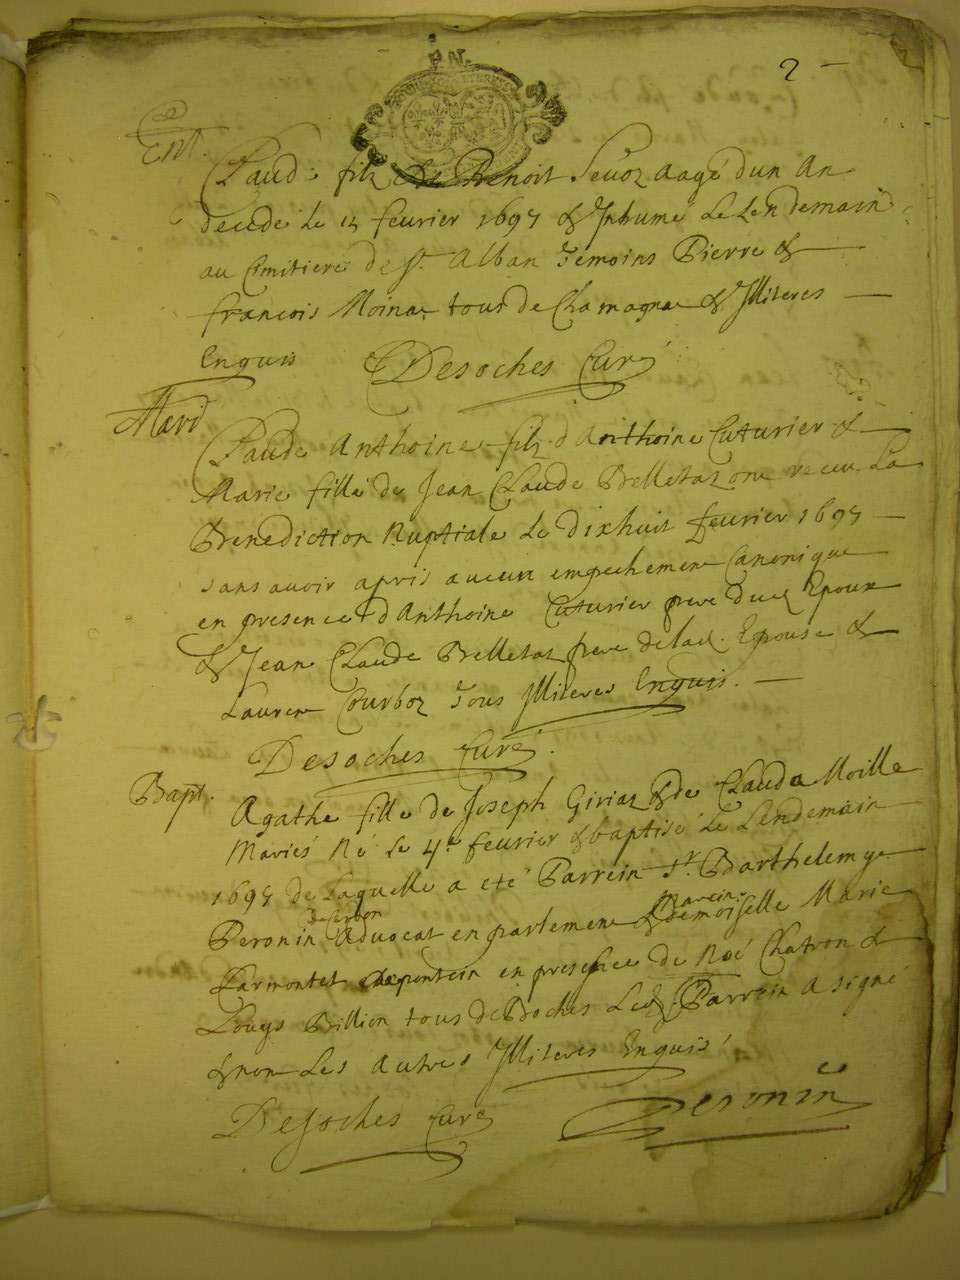 2
Ent.
Claude filz de Benoit Sevoz aagé dun An
decedé le 15 fevrier 1697 & Inhumé Le Lendemain
au Cimitiere de St. Alban Temoins Pierre &
francois Moinat tous de Chamagne & Jlliteres
Enquis Desoches Curé
Mari
Claude Anthoine filz d'Anthoine Cuturier &
Marie fille de Jean Claude Belletaz ont receu La
Benediction Nuptiale Le dixhuit fevrier 1697
sans avoir apris aucun empechement Canonique
en presence d'Anthoine Cuturier pere dud Epoux
& Jean Claude Belletaz pere delad. Epouse &
Laurent Courboz Tous Jlliteres Enquis.
Desoches Curé.
Bapt.
Agathe fille de Joseph Giriaz & de Clauda Moille
Mariés Né Le 4e fevrier & baptisé Le Lendemain
1697 de Laquelle a eté Parrein Sr. Barthelemy
Peronin Advocat en parlement & Mareine Demoiselle Marie
Carmontet en presence de Noé Chatron &
Louys Billion tous de Boches Led. Parrein a signé
& non Les Autres Jlliteres Enquis
Desoches Curé Peronin